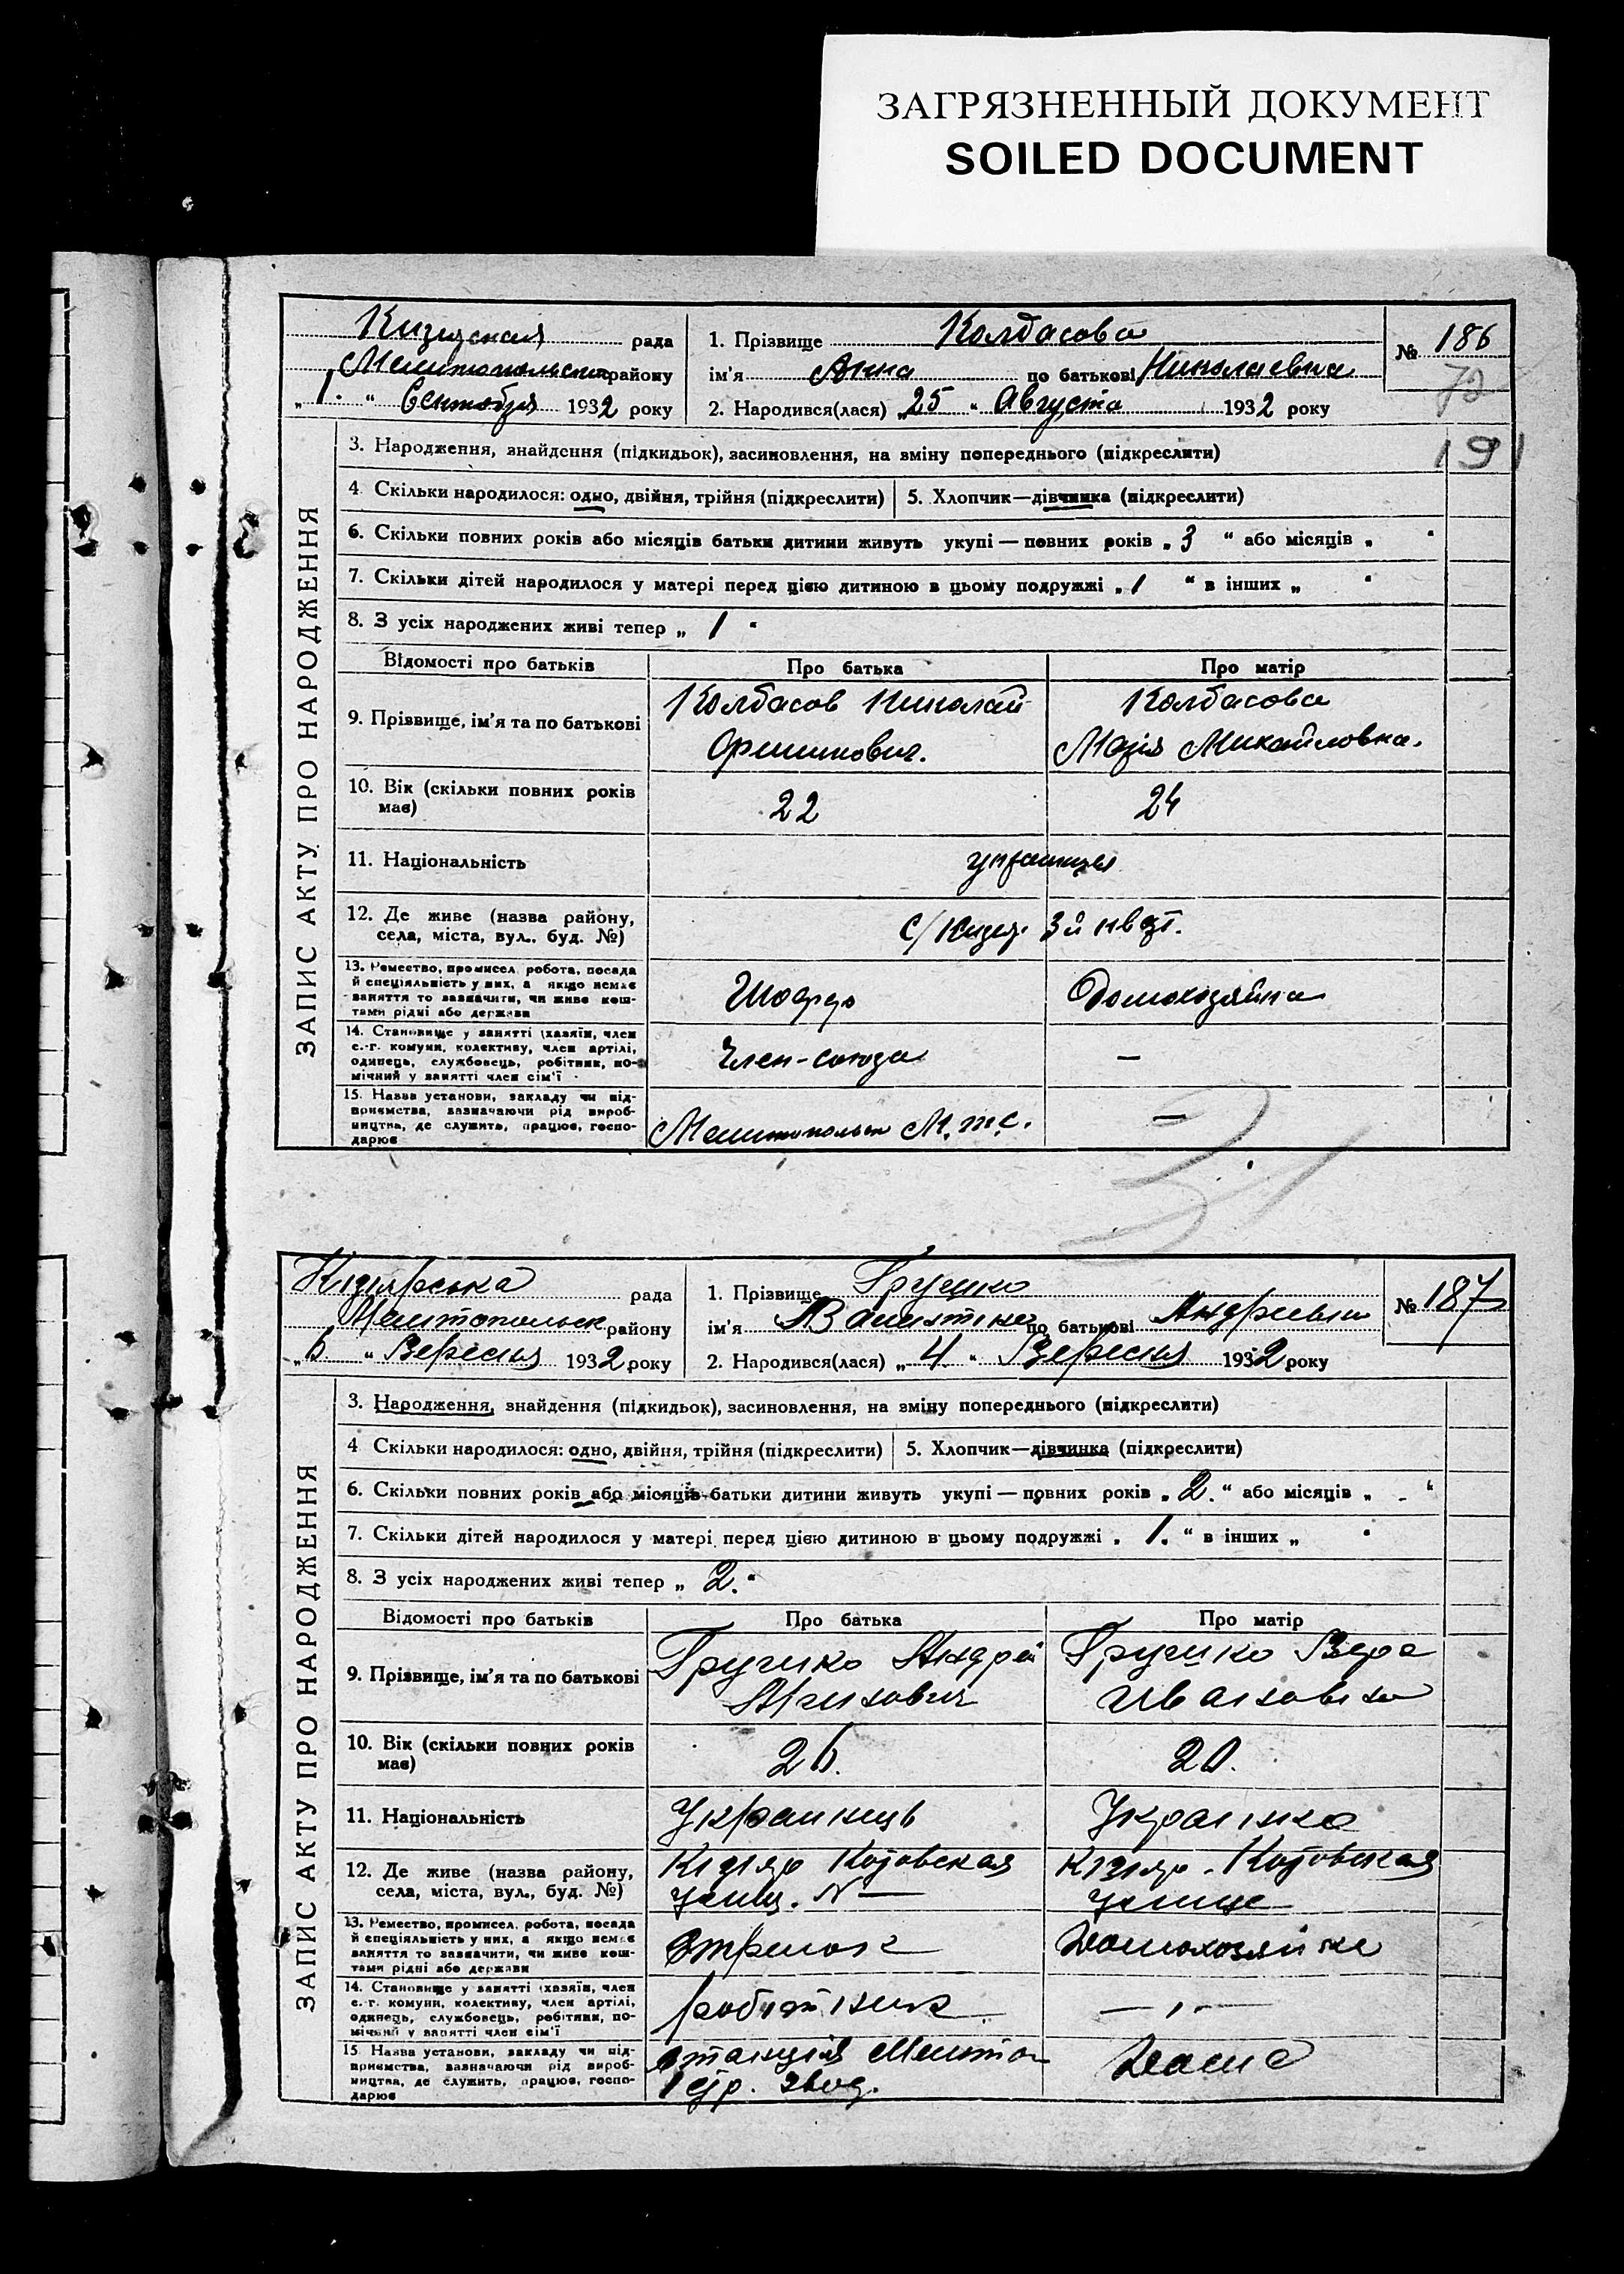 ЗАГРЯЗНЕННЫЙ ДОКУМЕНТ
SOILED DOCUMENT
ЗАПИС АКТУ ПРО НАРОДЖЕННЯ
рада
району
„1.“ Сентября 1932 року
1. Прізвище Колбасова
ім'я Анна по батькові Николаевна
2. Народився(лася) „25“ Августа 1932 року
№ 186
72
191
3. Народження, знайдення (підкидьок), засиновлення, на зміну попереднього (підкреслити)
4 Скільки народилося: одно, двійня, трійня (підкреслити)
5. Хлопчик—дівчинка (підкреслити)
6. Скільки повних років або місяців батьки дитини живуть укупі — повних років „3“ або місяців „ “
7. Скільки дітей народилося у матері перед цією дитиною в цьому подружжі „1“ в інших „ “
8. З усіх народжених живі тепер „1“
Відомості про батьків
Про батька
Про матір
9. Прізвище, ім'я та по батькові
Колбасов Николай
Колбасова
Марія Михайловна.
10. Вік (скільки повних років
має)
22
24
11. Національність
украинцы
12. Де живе (назва району,
села, міста, вул., буд. №)
с/Кизер. 3й кварт.
13. Ремество, промисел, робота, посада
й спеціяльність у них, а якщо немає
заняття то зазначити, чи живе кош-
тами рідні або держави
Шофер
Домохозяйка
14. Становище у занятті (хазяїн, член
с.-г. комуни, колективу, член артілі,
одинець, службовець, робітник, по-
мічний у занятті член сім'ї
Член-союза
—
15. Назва установи, закладу чи під-
приємства, зазначаючи рід вироб-
ництва, де служить, працює, госпо-
дарює
Мелитопольск М.Т.С.
—
ЗАПИС АКТУ ПРО НАРОДЖЕННЯ
Кізіярська рада
Мелітопольск району
„6“ Вересня 1932 року
1. Прізвище Грушко
ім'я Валентина по батькові Андріевна
2. Народився(лася) „4“ Вересня 1932 року
№ 187
3. Народження, знайдення (підкидьок), засиновлення, на зміну попереднього (підкреслити)
4 Скільки народилося: одно, двійня, трійня (підкреслити)
5. Хлопчик—дівчинка (підкреслити)
6. Скільки повних років або місяців батьки дитини живуть укупі — повних років „2.“ або місяців „ - “
7. Скільки дітей народилося у матері перед цією дитиною в цьому подружжі „1.“ в інших „ “
8. З усіх народжених живі тепер „2.“
Відомості про батьків
Про батька
Про матір
9. Прізвище, ім'я та по батькові
Грушко Андрій
Грушко Вера
Ивановна
10. Вік (скільки повних років
має)
26.
20.
11. Національність
Украинець
Украінка
12. Де живе (назва району,
села, міста, вул., буд. №)
Кізіяр Котовская
улиц. N —
Кізіяр. Котовская
улице
13. Ремество, промисел, робота, посада
й спеціяльність у них, а якщо немає
заняття то зазначити, чи живе кош-
тами рідні або держави
Стрелок
Домохозяйка
14. Становище у занятті (хазяїн, член
с.-г. комуни, колективу, член артілі,
одинець, службовець, робітник, по-
мічний у занятті член сім'ї
робітник
— „ —
15. Назва установи, закладу чи під-
приємства, зазначаючи рід вироб-
ництва, де служить, працює, госпо-
дарює
станция Мелито
Дома